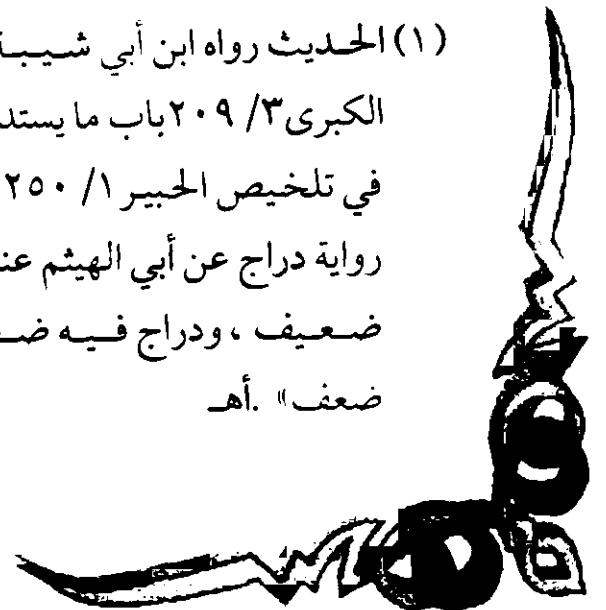 (١) الحديث رواه ابن أبي شيبة
الكبرى ٣/ ٢٠٩ باب ما يستد
في تلخيص الحبير ١/ ٢٥٠
رواية دراج عن أبي الهيثم عن
ضعيف ، ودراج فيه ضـ
ضعف» .أهـ